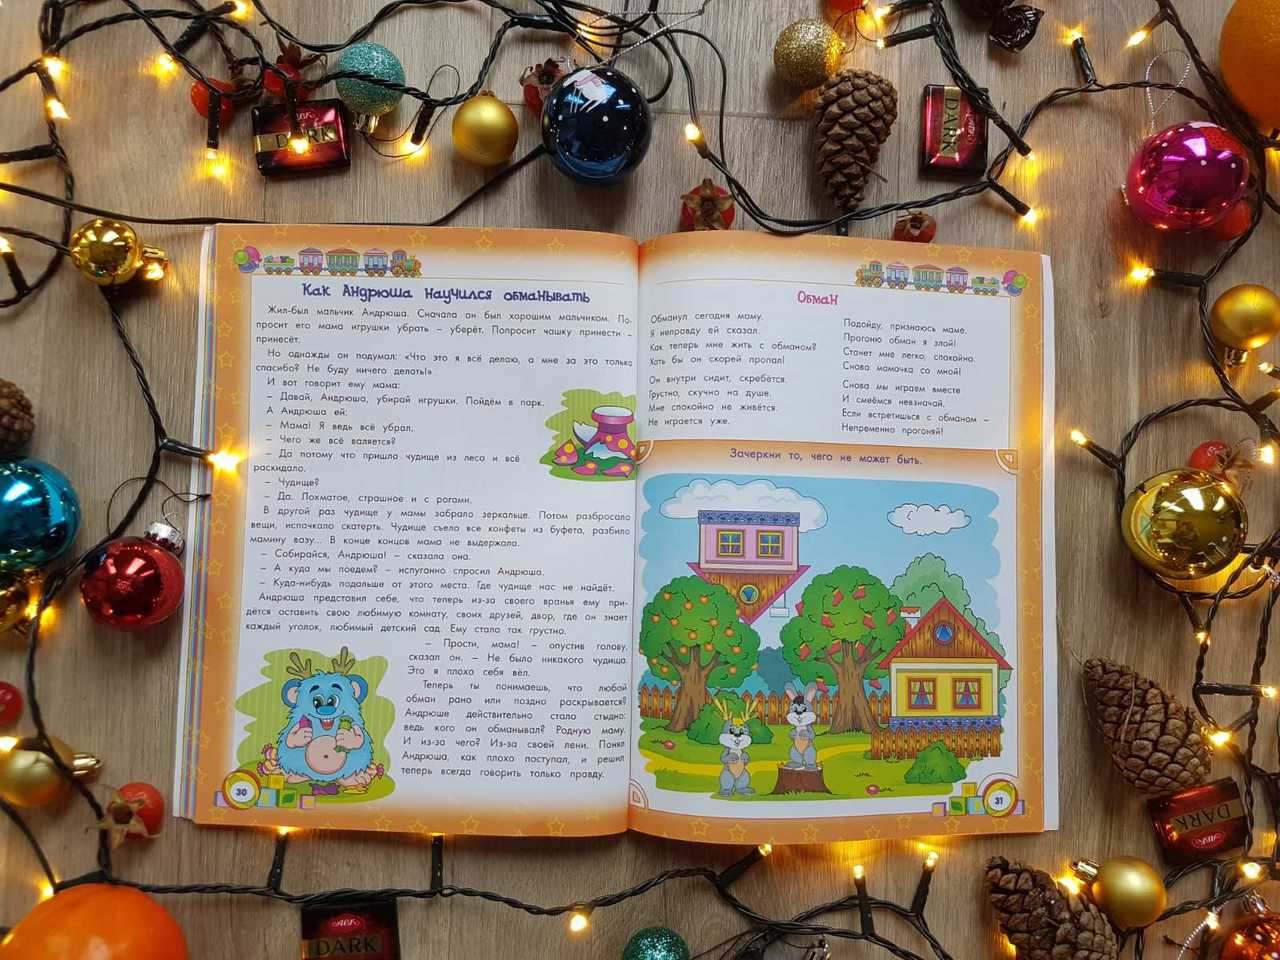 Как Андрюша научился обманывать
Жил-был мальчик Андрюша. Сначала он был хорошим мальчиком. По-
просит его мама игрушки убрать – уберёт. Попросит чашку принести –
принесёт.
Но однажды он подумал: «Что это я всё делаю, а мне за это только
спасибо? Не буду ничего делать!»
И вот говорит ему мама:
– Давай, Андрюша, убирай игрушки. Пойдём в парк.
А Андрюша ей:
– Мама! Я ведь всё убрал.
– Чего же всё валяется?
– Да потому что пришло чудище из леса и всё
раскидало.
– Чудище?
– Да. Лохматое, страшное и с рогами.
В другой раз чудище у мамы забрало зеркальце. Потом разбросало
вещи, испачкало скатерть. Чудище съело все конфеты из буфета, разбило
мамину вазу... В конце концов мама не выдержала.
– Собирайся, Андрюша! – сказала она.
– А куда мы поедем? – испуганно спросил Андрюша.
– Куда-нибудь подальше от этого места. Где чудище нас не найдёт.
Андрюша представил себе, что теперь из-за своего вранья ему при-
дётся оставить свою любимую комнату, своих друзей, двор, где он знает
каждый уголок, любимый детский сад. Ему стало так грустно.
– Прости, мама! – опустив голову,
сказал он. – Не было никакого чудища.
Это я плохо себя вёл.
Теперь ты понимаешь, что любой
обман рано или поздно раскрывается?
Андрюше действительно стало стыдно:
ведь кого он обманывал? Родную маму.
И из-за чего? Из-за своей лени. Понял
Андрюша, как плохо поступал, и решил
теперь всегда говорить только правду.
30
Обман
Обманул сегодня маму.
Я неправду ей сказал.
Как теперь мне жить с обманом?
Хоть бы он скорей пропал!
Он внутри сидит, скребётся.
Грустно, скучно на душе.
Мне спокойно не живётся.
Не играется уже.
Подойду, признаюсь маме.
Прогоню обман я злой!
Станет мне легко, спокойно.
Снова мамочка со мной!
Снова мы играем вместе
И смеёмся невзначай.
Если встретишься с обманом –
Непременно прогоняй!
Зачеркни то, чего не может быть.
31
DARK
DARK
DARK
АВК
DARK